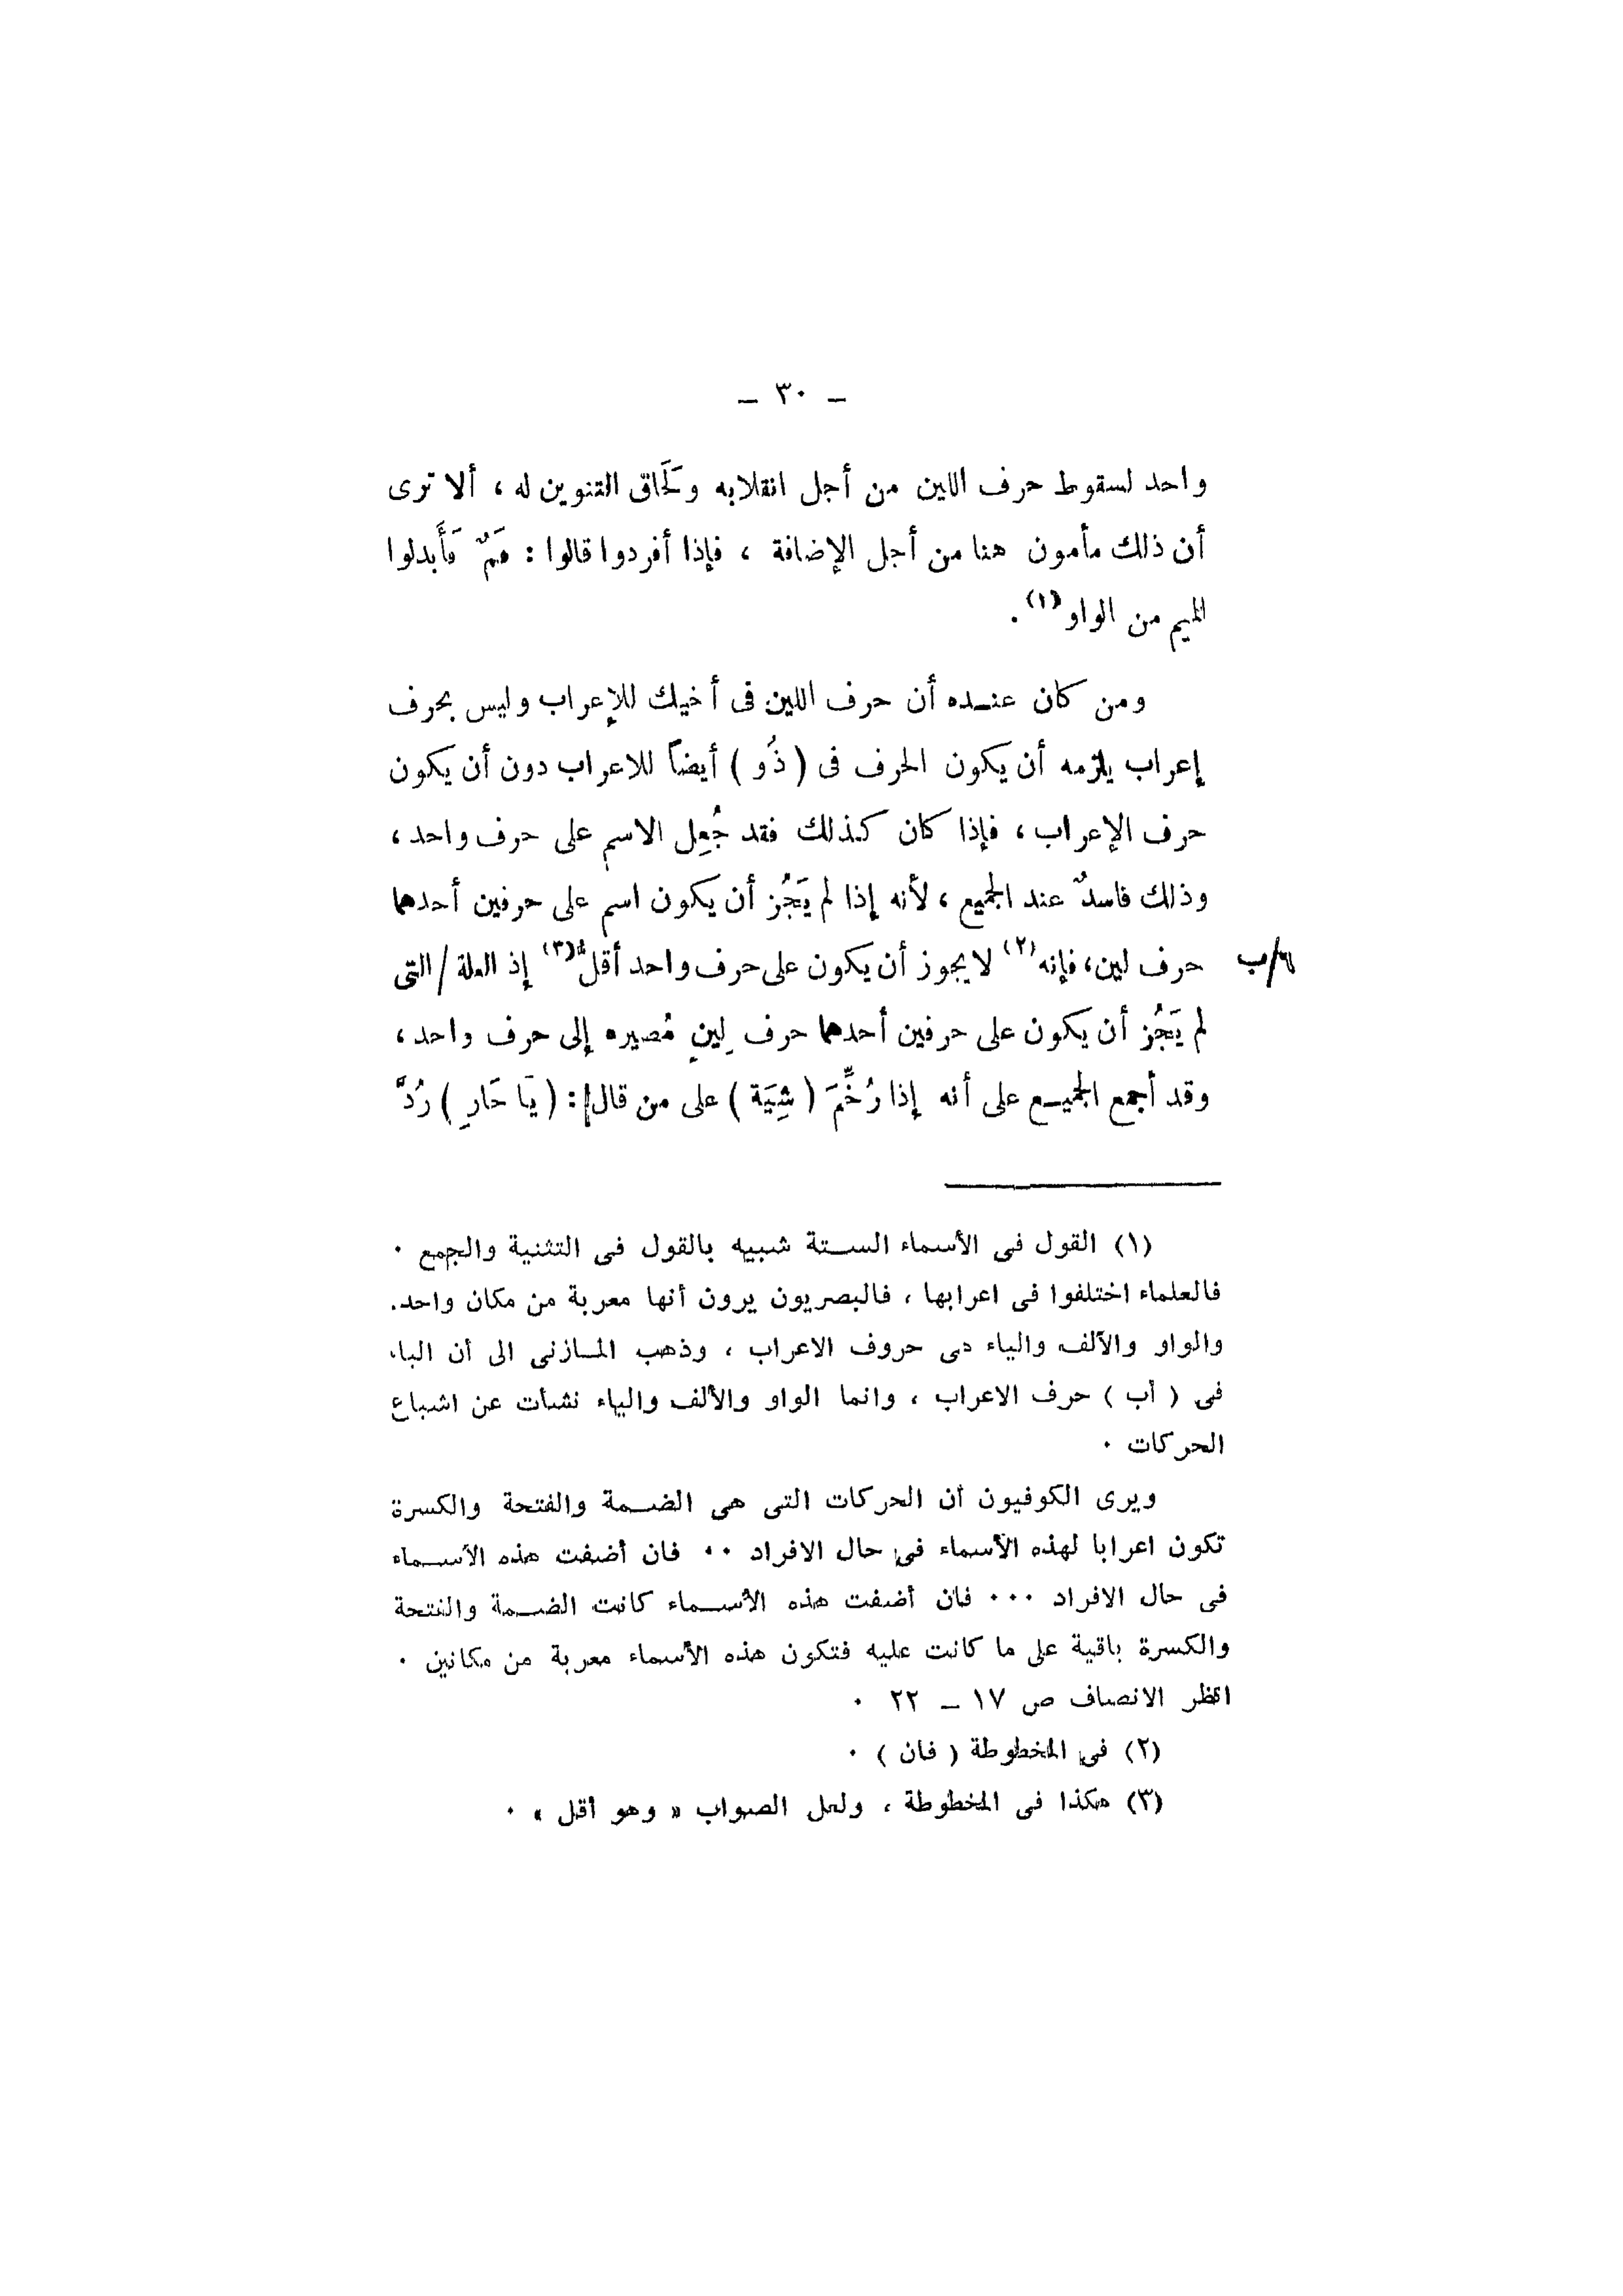 — ٣٠ —
واحد لسقوط حرف اللين من أجل انقلابه وَلَحَاق التنوين له ، ألا ترى
أن ذلك مأمون هنا من أجل الإضافة ، فإذا أفردوا قالوا : فَمٌ فَأَبدلوا
الميم من الواو (١) .
ومن كان عنـده أن حرف اللين فى أخيك للإعراب وليس بحرف
إعراب يلزمه أن يكون الحرف فى ( ذُو ) أيضاً للاعراب دون أن يكون
حرف الإعراب ، فإذا كان كذلك فقد جُعِل الاسم على حرف واحد ،
وذلك فاسدٌ عند الجميع ، لأنه إذا لم يَجُز أن يكون اسم على حرفين أحدهما
حرف لين، فإنه (٢) لا يجوز أن يكون على حرف واحد أقلُّ (٣) إذ العلة / التى
٦/ب
لم يَجُز أن يكون على حرفين أحدهما حرف لِينٍ مُصيره إلى حرف واحد ،
وقد أجمع الجميـع على أنه إذا رُخِّمَ ( شِيَة ) على من قال : ( يَا حَارِ ) رُدَّ
(١) القول فى الأسماء الستة شبيه بالقول فى التثنية والجمع .
فالعلماء اختلفوا فى اعرابها ، فالبصريون يرون أنها معربة من مكان واحد.
والواو والألف والياء هى حروف الاعراب ، وذهب المازنى الى أن الباء
فى ( أب ) حرف الاعراب ، وانما الواو والألف والياء نشأت عن اشباع
الحركات .
ويرى الكوفيون أن الحركات التى هى الضمة والفتحة والكسرة
تكون اعرابا لهذه الأسماء فى حال الافراد .. فان أضفت هذه الأسماء
فى حال الافراد ... فان أضفت هذه الأسماء كانت الضمة والفتحة
والكسرة باقية على ما كانت عليه فتكون هذه الأسماء معربة من مكانين .
انظر الانصاف ص ١٧ — ٢٢ .
(٢) فى المخطوطة ( فان ) .
(٣) هكذا فى المخطوطة ، ولعل الصواب « وهو أقل » .